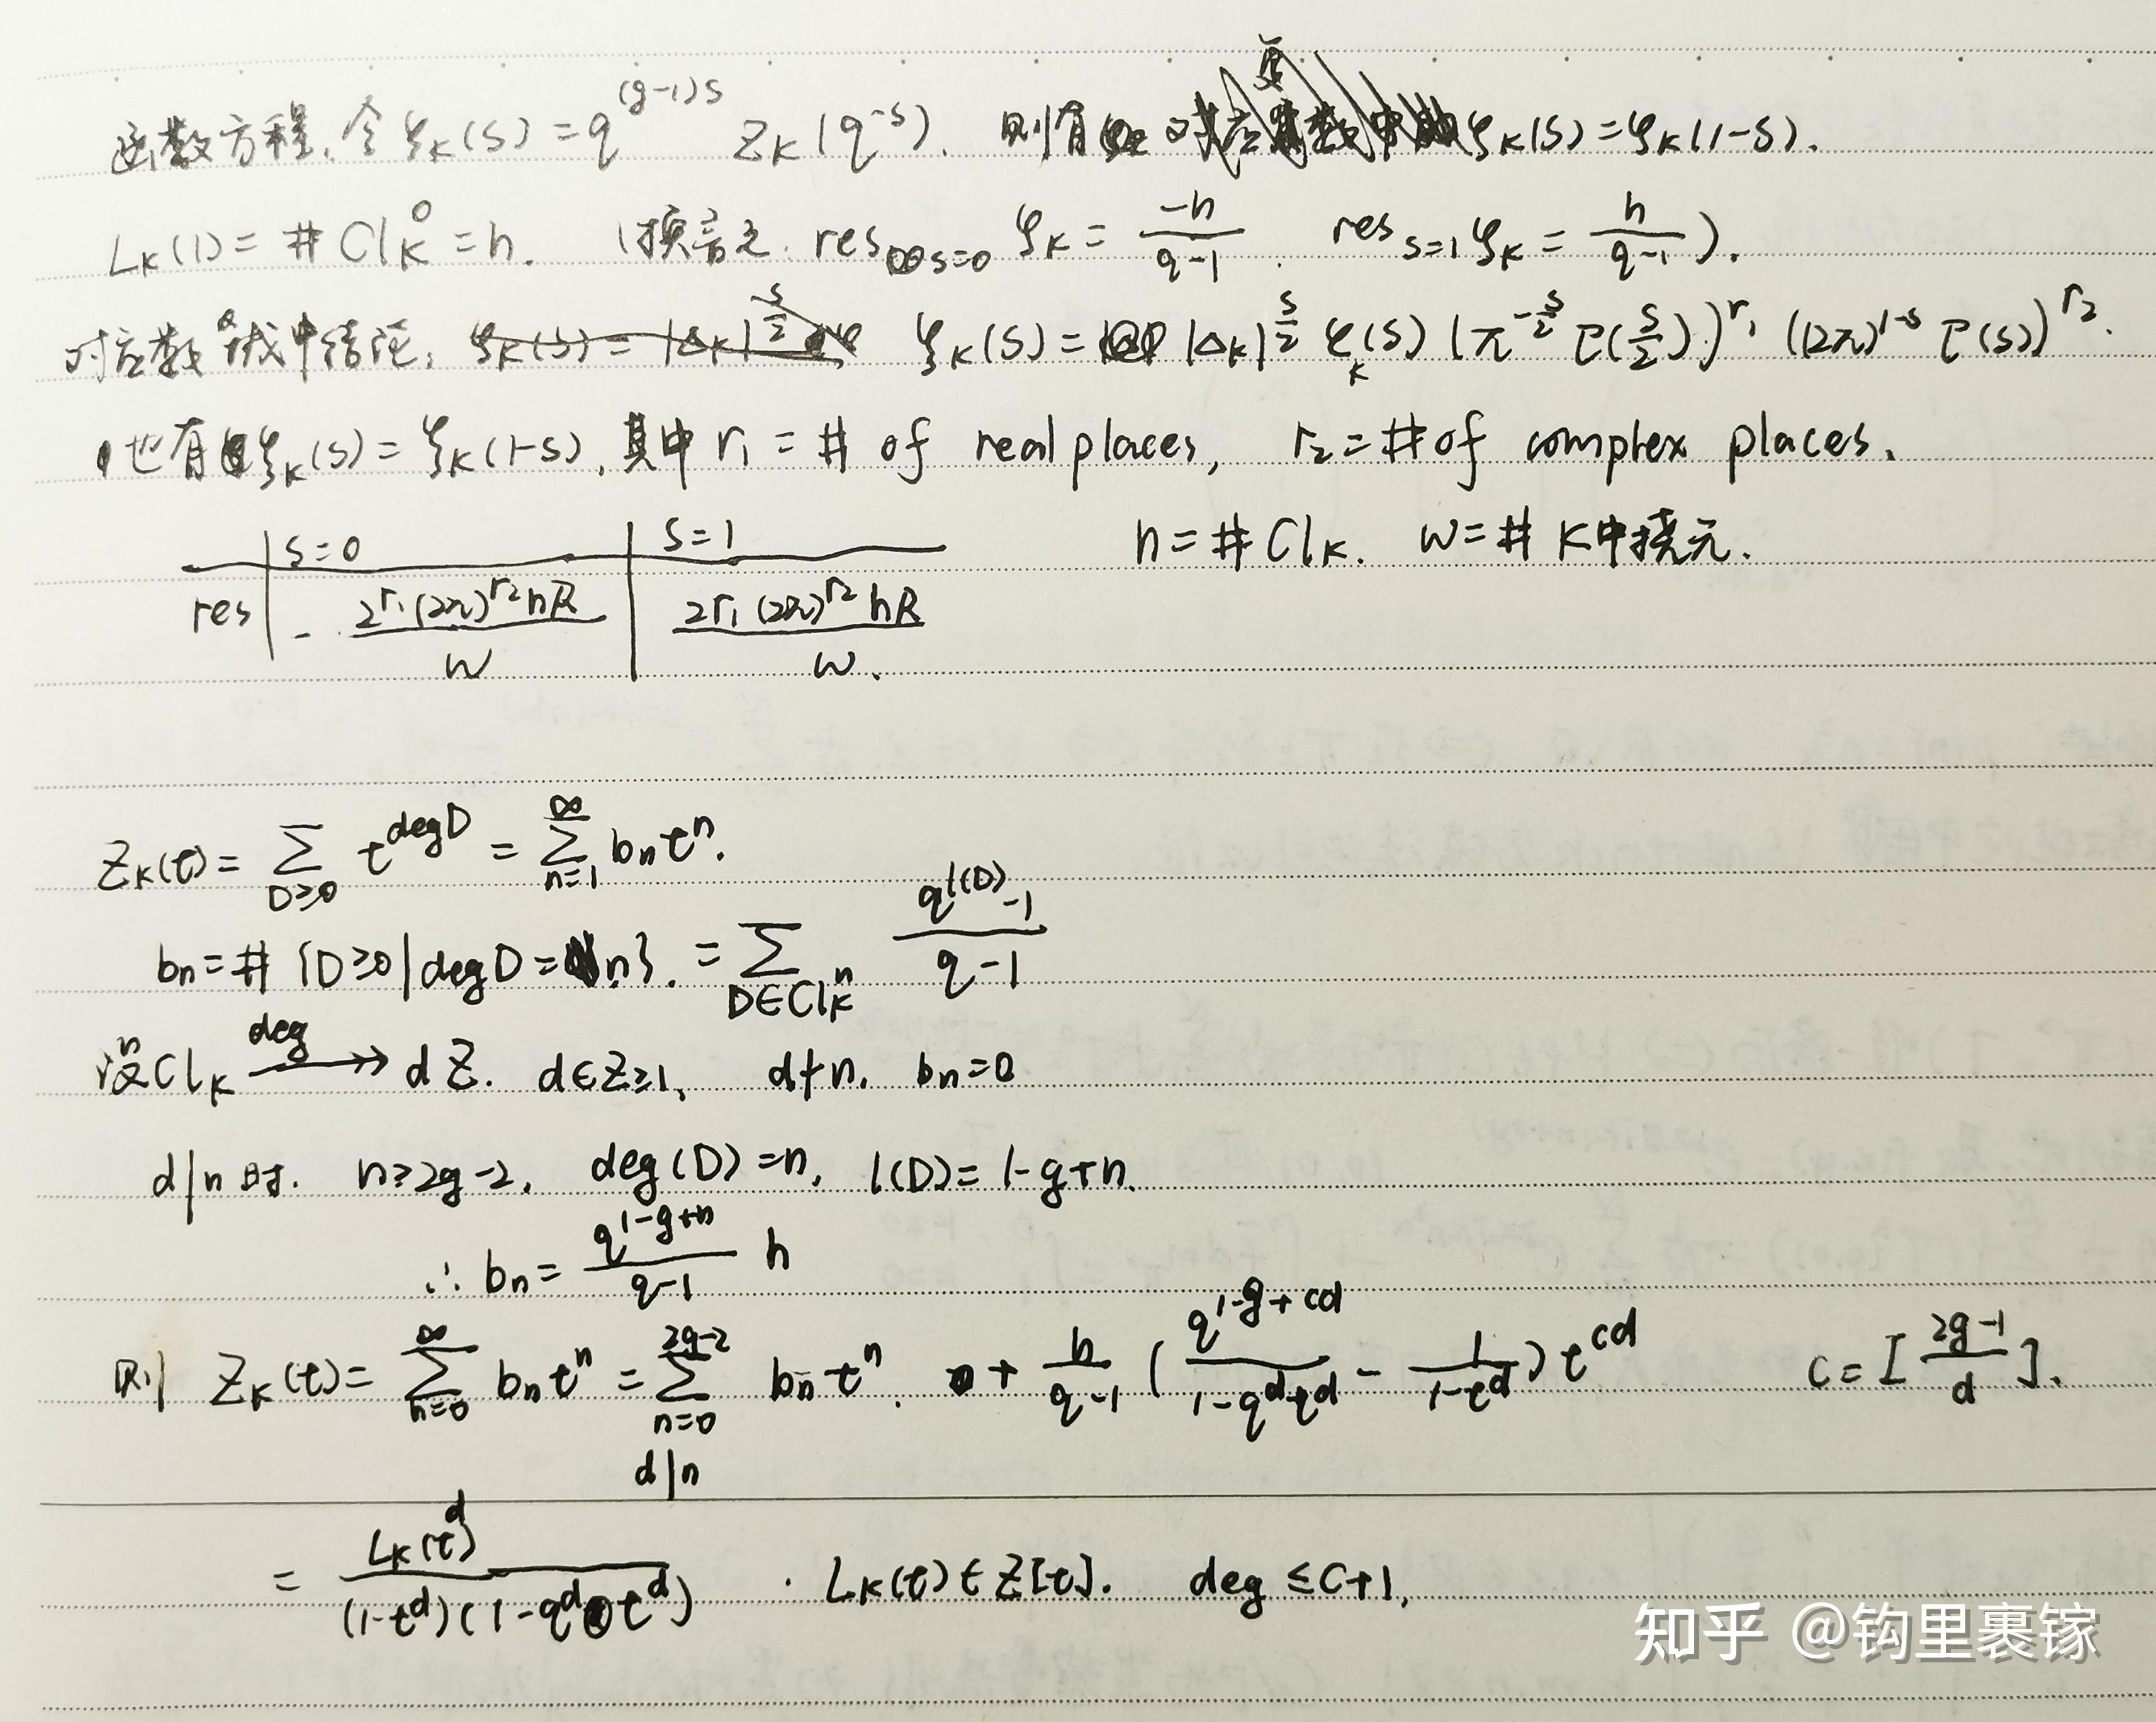 函数方程. 令 ξ_K(s) = q^{(g-1)s} Z_K(q^{-s}). 则有 ξ_K(s) = ξ_K(1-s).
L_K(1) = # Cl_K^0 = h. (换言之. res_{s=0} ξ_K = \frac{-h}{q-1}. res_{s=1} ξ_K = \frac{h}{q-1}).
对应数域中结论: ξ_K(s) = |Δ_K|^{\frac{s}{2}} ζ_K(s) (π^{-\frac{s}{2}} Γ(\frac{s}{2}))^{r_1} ((2π)^{1-s} Γ(s))^{r_2}.
也有 ξ_K(s) = ξ_K(1-s), 其中 r_1 = # of real places, r_2 = # of complex places.
s=0 s=1 h = # Cl_K. w = # K中挠元.
res - \frac{2^{r_1}(2π)^{r_2} hR}{w} \frac{2^{r_1}(2π)^{r_2} hR}{w}.
Z_K(t) = \sum_{D≥0} t^{deg D} = \sum_{n=1}^{∞} b_n t^n.
b_n = # {D≥0 | deg D = n}. = \sum_{D∈Cl_K^n} \frac{q^{l(D)}-1}{q-1}
设 Cl_K^n \xrightarrow{deg}↠ dZ. d∈Z≥1, d∤n. b_n=0
d|n 时. n≥2g-2, deg(D)=n, l(D)=1-g+n.
∴ b_n = \frac{q^{1-g+n}}{q-1} h
则 Z_K(t) = \sum_{n=0}^{∞} b_n t^n = \sum_{n=0, d|n}^{2g-2} b_n t^n. + \frac{h}{q-1} (\frac{q^{1-g+cd}}{1-q^d t^d} - \frac{1}{1-t^d}) t^{cd} c = [\frac{2g-1}{d}].
= \frac{L_K(t^d)}{(1-t^d)(1-q^d t^d)} . L_K(t)∈Z[t]. deg ≤ c+1.
知乎 @钩里裹镓